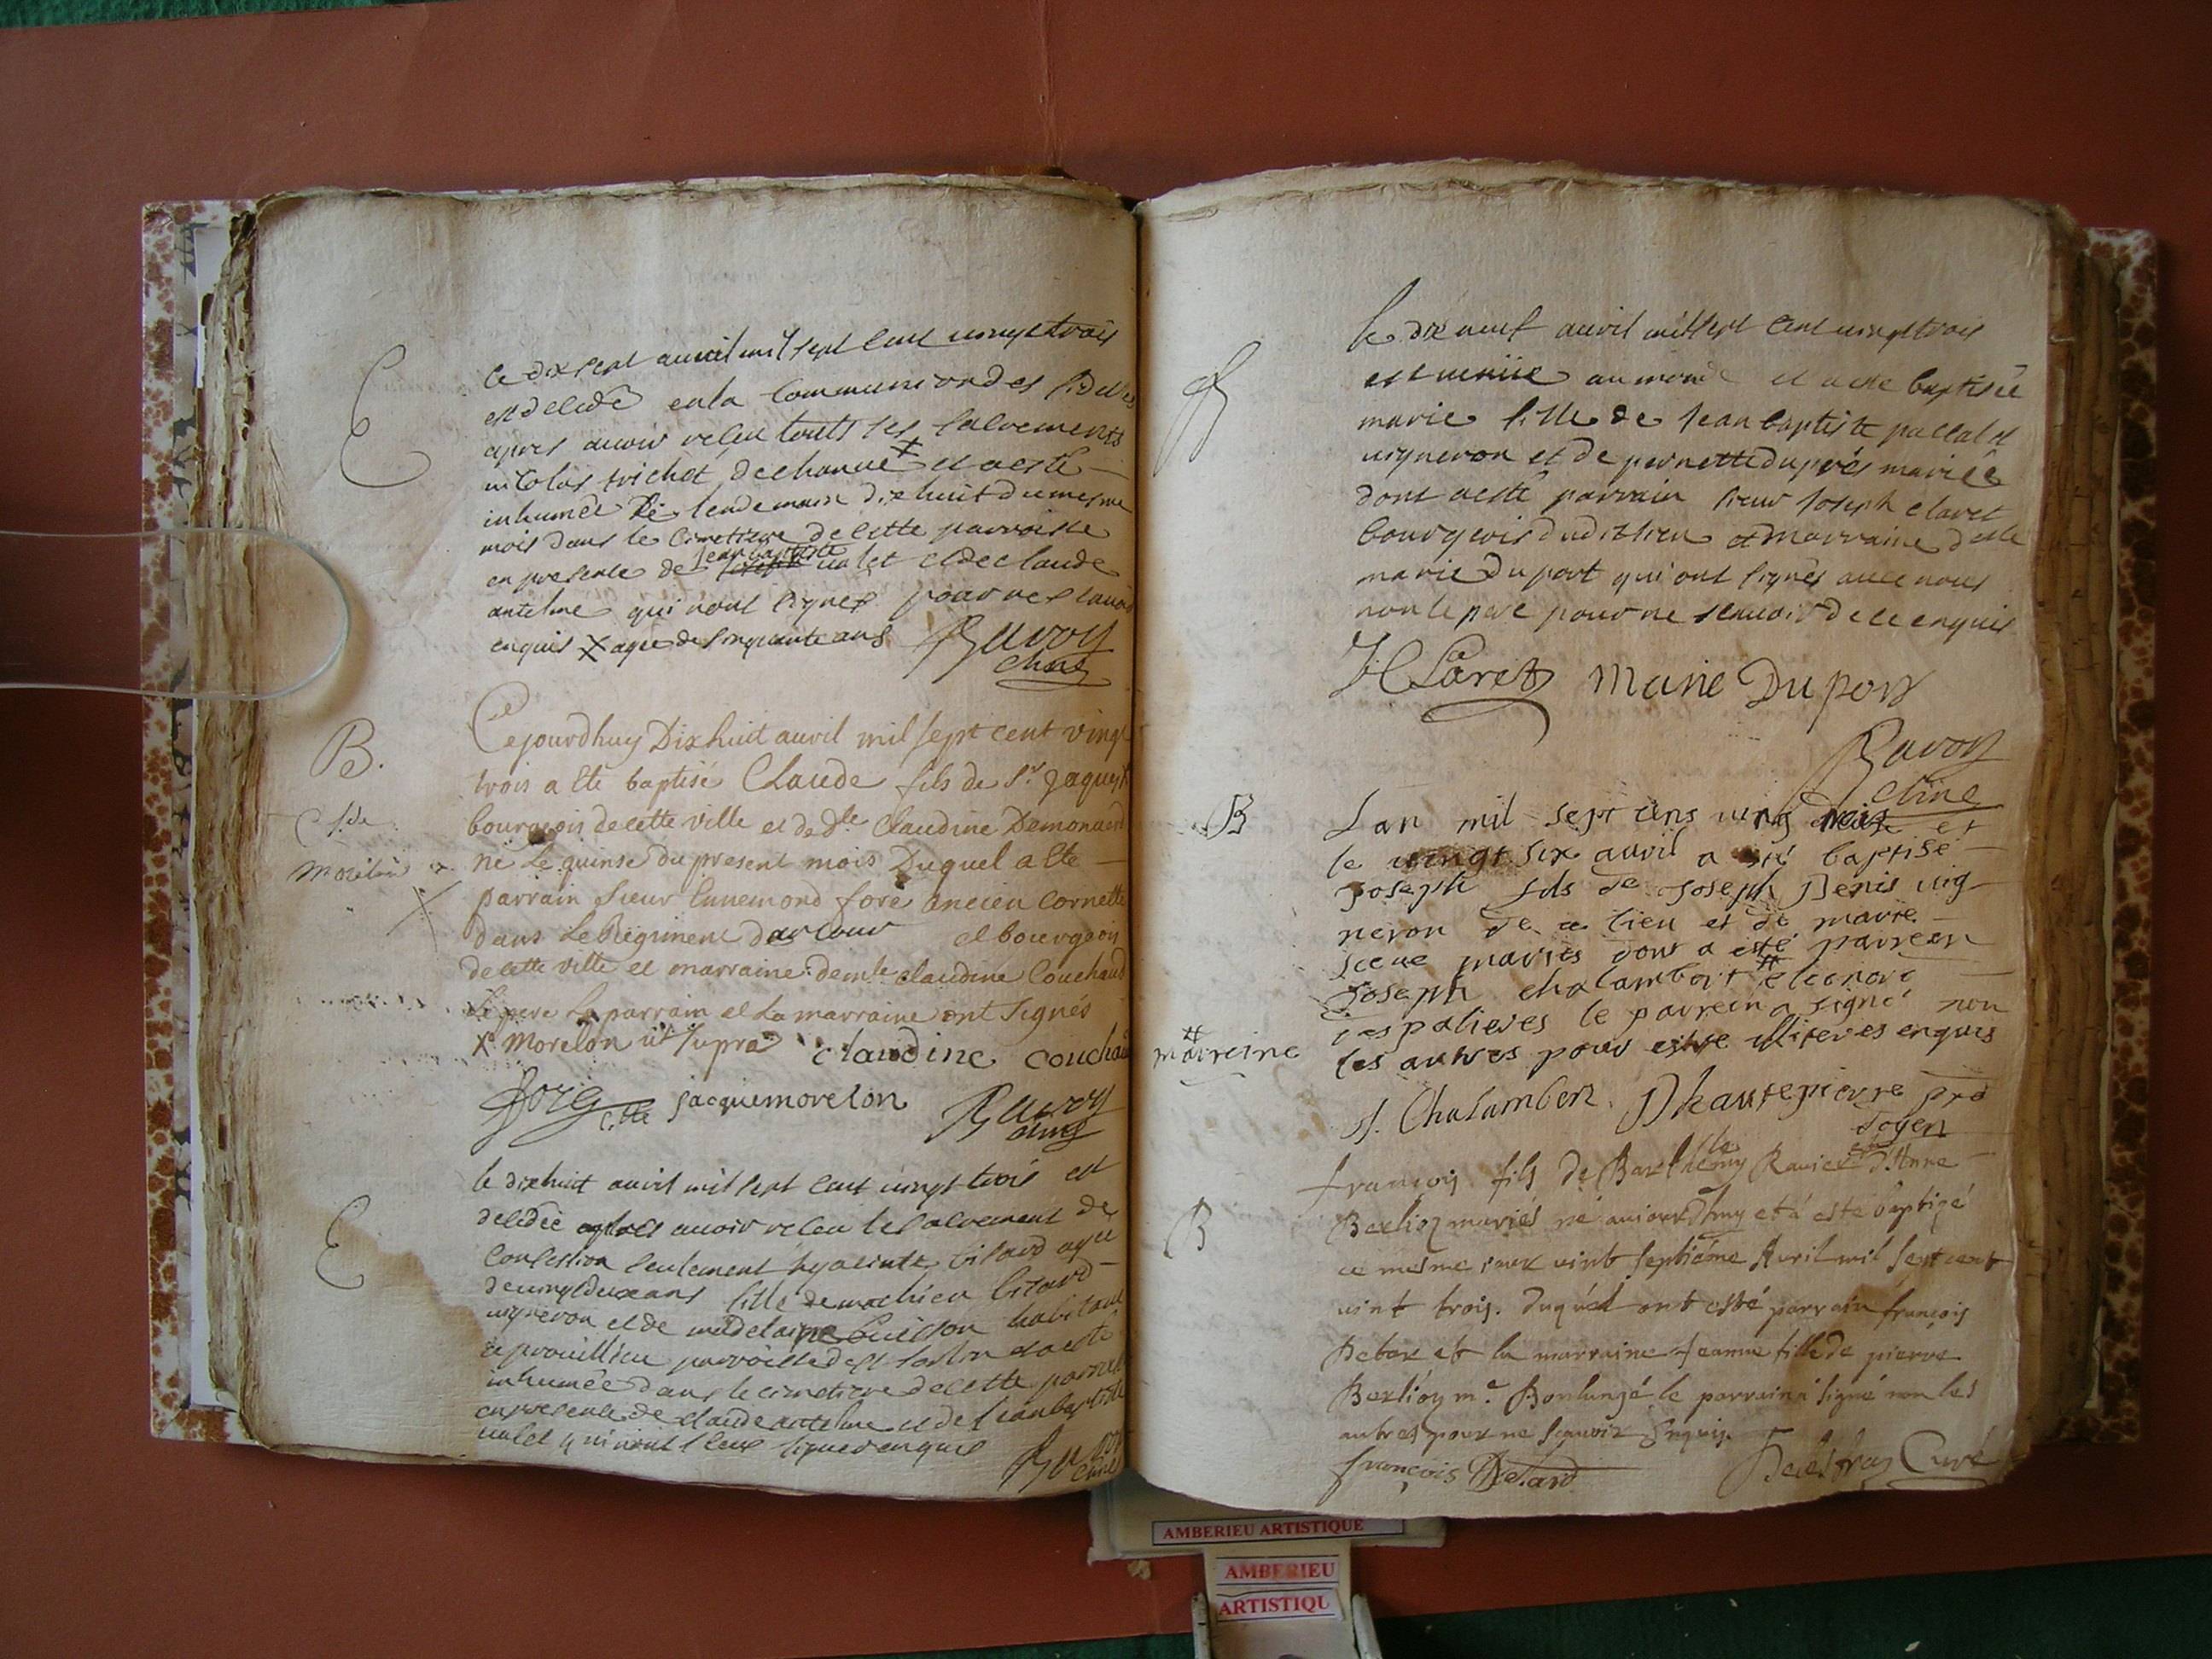 E
Le dix sept auvril mil sept cent vingt trois
est decede en la Communion des fideles
apres avoir receu touts ses sacrements
nicolas trichet de chanue X et a esté
inhumée le lendemain dix huit du mesme
mois dans le Cimetiere de cette parroisse
en presence de jean baptiste valet et de claude
antelme qui n'ont signes pour ne scavoir
enquis X age de sinquante ans Ravoy
chne
B.
Cl. de
Morelon
Cejourdhuy Dix huit auvril mil sept cent vingt
trois a ete baptisé Claude fils de Sr. Jaques X
bourgeois de cette ville et de dlle Claudine Demonaert
né Le quinse du present mois Duquel a ete
parrain Sieur Ennemond fore ancien Cornette
dans Le Regiment darcour et bourgeois
de cette ville et marraine: demle claudine Couchaud
Le pere Le parrain et La marraine ont signés
X Morelon ut supra claudine couchaud
jacquemorelon Ravoy
chne
E
le dix huit auvril mil sept cent vingt trois est
decedée apres avoir receu le sacrement de
Confession seulement hyacinte bisard agée
de vingt deux ans fille de mathieu bisard
vigneron et de madelaine buisson habitant
a prouillieu parroisse de st sorlin et a esté
inhumée dans le cimetiere de cette parroisse
en presence de claude antelme et de jean baptiste
valet qui n'ont sceu signer enquis Ravoy
chne
le dix neuf auvril mil sept cent vingt trois
est venüe au monde et a esté baptisée
marie fille de jean baptiste pallal et
vigneron et de pernette duprés mariés
dont a esté parrain sieur joseph claret
bourgeois dudit lieu et marraine dlle
marie duport qui ont signés avec nous
non le pere pour ne scavoir de ce enquis
J Claret Marie Duport
Ravoy
chne
B
Lan mil sept cens vingt trois et
le vingt six auvril a esté baptisé
Joseph fils de Joseph Denis vig
neron de ce lieu et de marie
mariés dont a esté parrein
Joseph chalambert # eleonore
despalieres le parrein a signé non
les autres pour estre illiteres enquis
# marreine
J. Chalamber Dhautepierre prd
doyen
B
françois fils de Barthelemy Ravier et d'Anne
Berlioz mariés né aujourd'huy et a esté baptizé
ce mesme jour vint septiéme Avril mil sept cent
vint trois. duquel ont esté parrain françois
Debar et la marraine Jeanne fille de pierre
Berlioz me. Boulangé le parrain a signé non les
autres pour ne sçavoir Enquis.
françois Curé
AMBERIEU ARTISTIQUE
AMBERIEU
ARTISTIQU